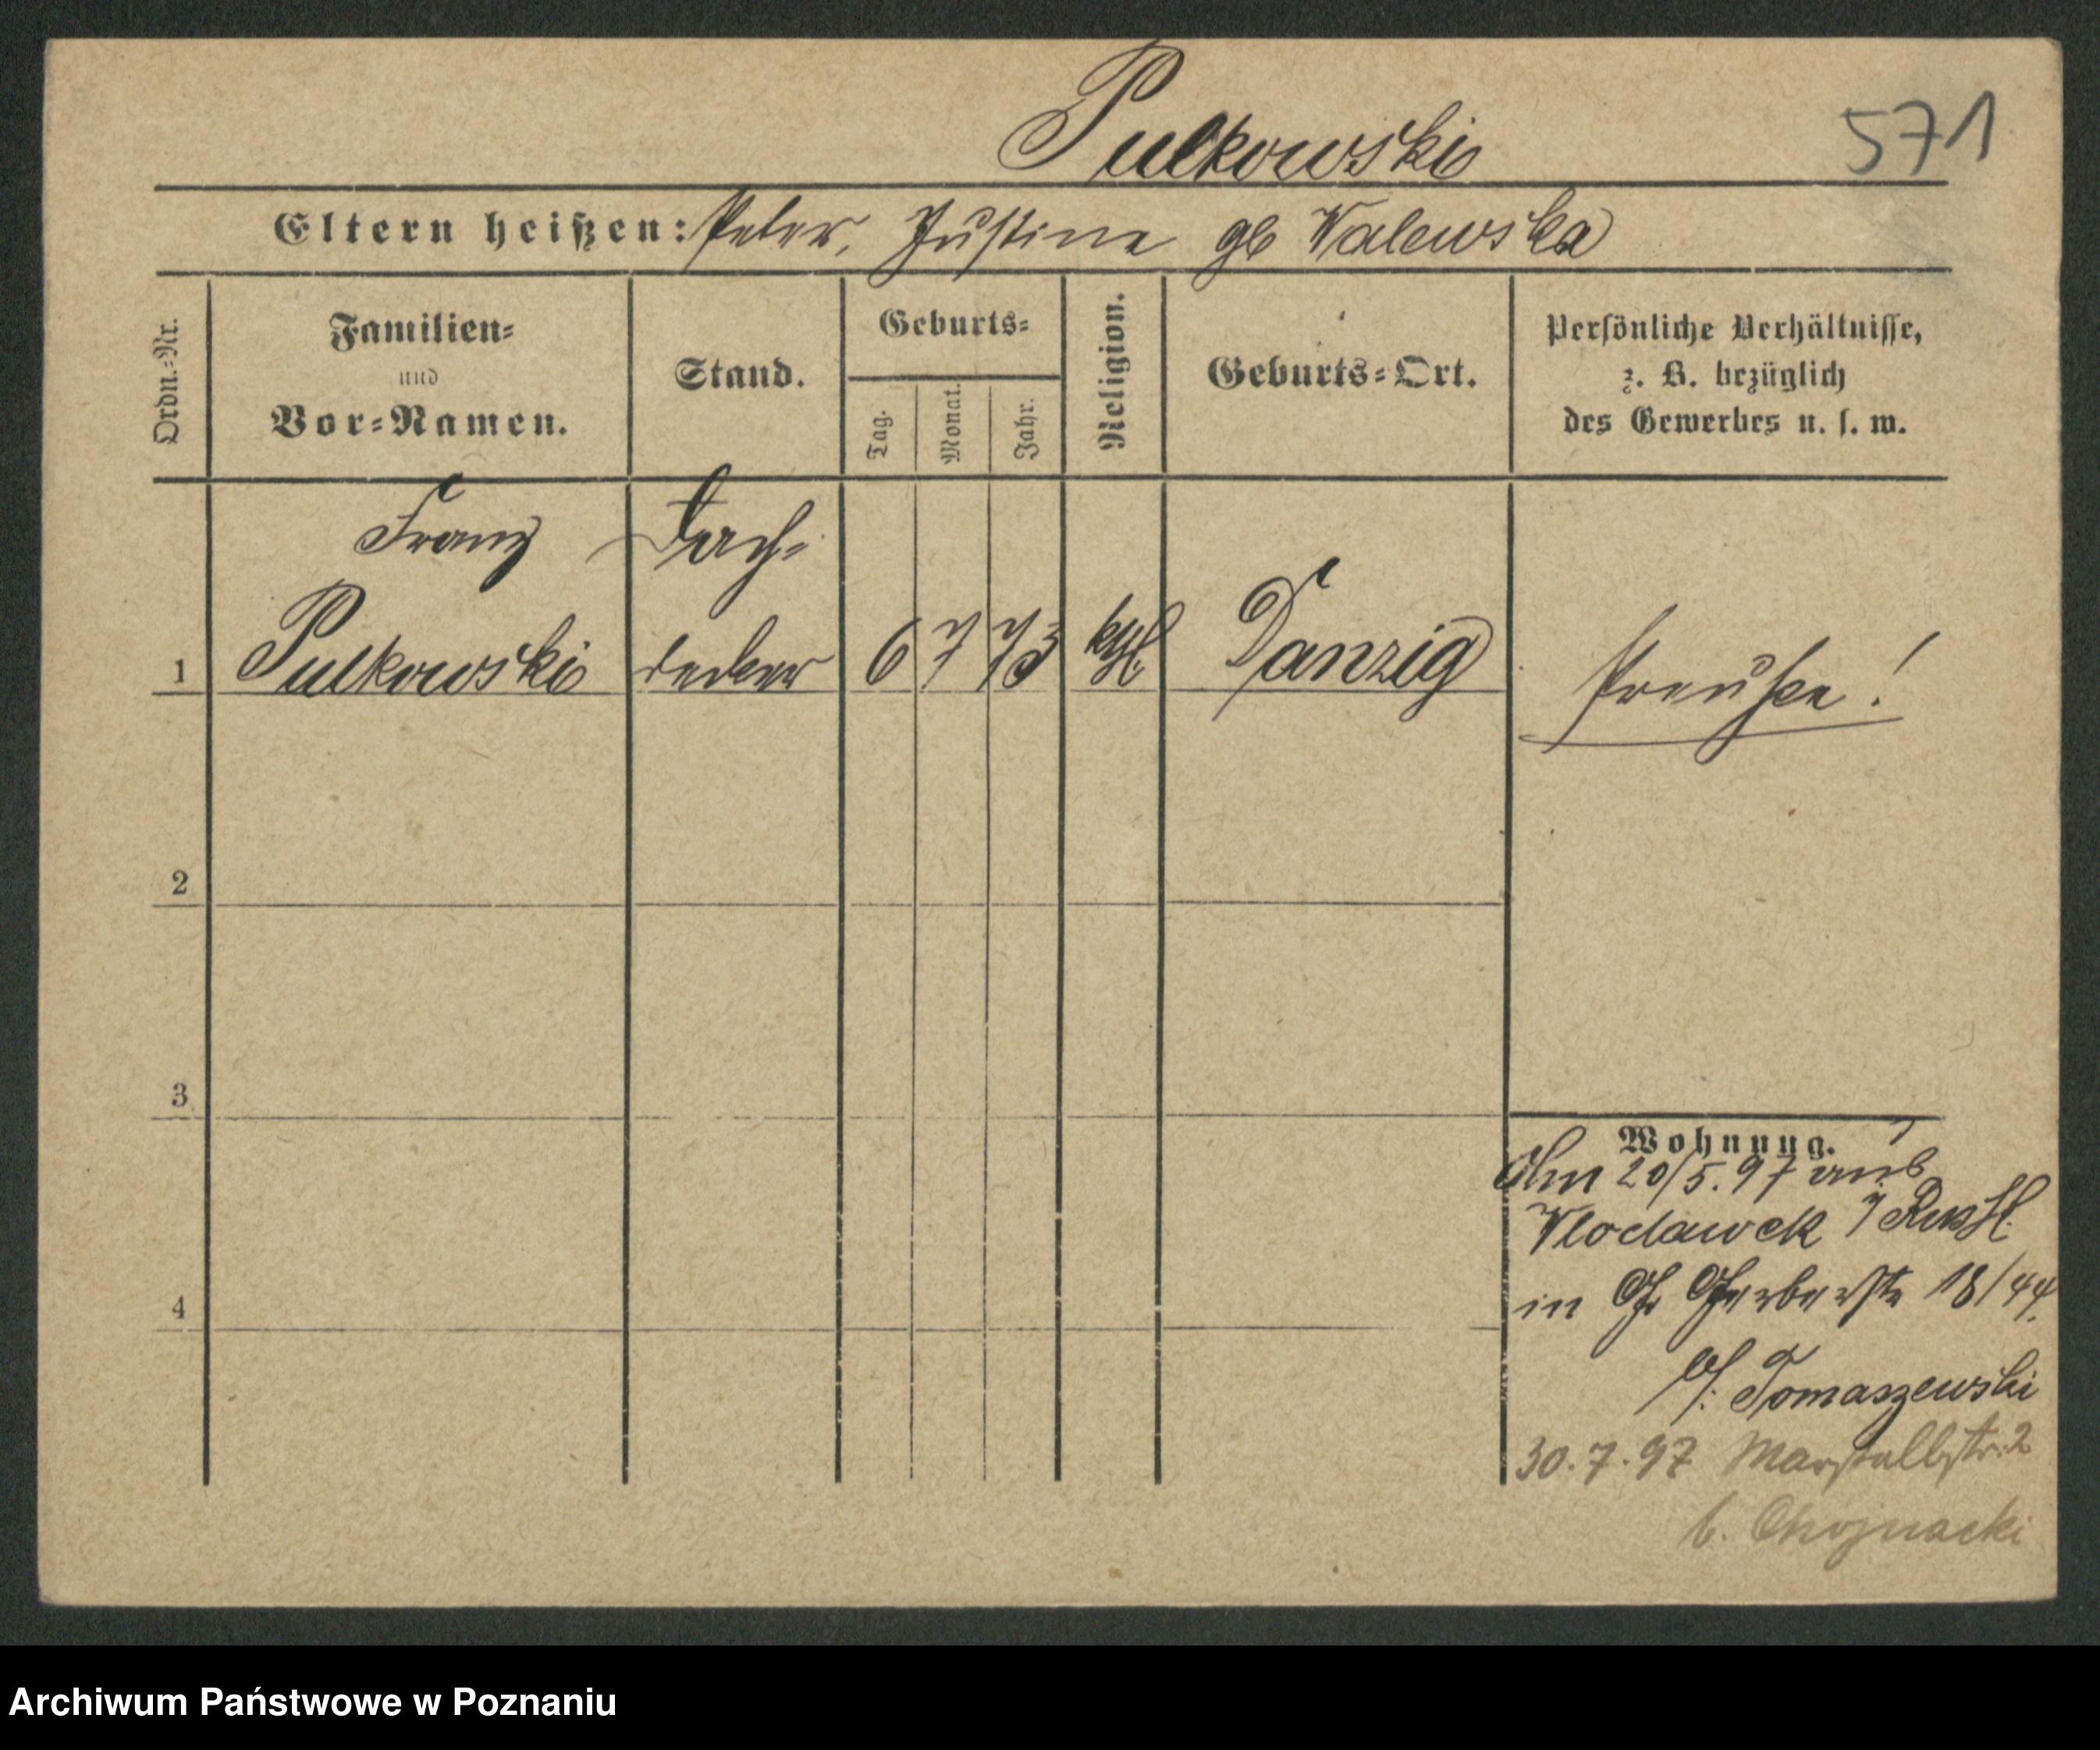 Pulkowski
571
Eltern heißen: Peter, Justine gb Walewska
Ordn.=Nr.
Familien=
und
Vor=Namen.
Stand.
Geburts=
Tag.
Monat.
Jahr.
Religion.
Geburts=Ort.
Persönliche Verhältnisse,
z. B. bezüglich
des Gewerbes u. s. w.
Franz Dach-
1 Pulkowski decker 6 7 73 kth. Danzig
Preuße!
2
3
4
Wohnung.
Am 20/5.97 aus
Wloclawek i Russl.
in Gr Gerberstr 18/44.
b/. Tomaszewski
30.7.97 Marstallstr. 2
b. Chojnacki
Archiwum Państwowe w Poznaniu